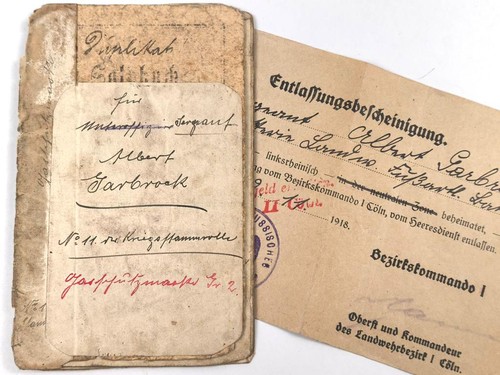 Duplikat
Soldbuch
für
Unteroffizier Sergeant
Albert
Garbrock
No 11. der Kriegsstammrolle
Gasschutzmaske Gr. 2.
Entlassungsbescheinigung.
Albert Garbr
linksrheinisch in der neutralen Zone beheimatet,
ng vom Bezirkskommando I Cöln, vom Heeresdienst entlassen.
1918.
Bezirkskommando I
Oberst und Kommandeur
des Landwehrbezirk I Cöln.